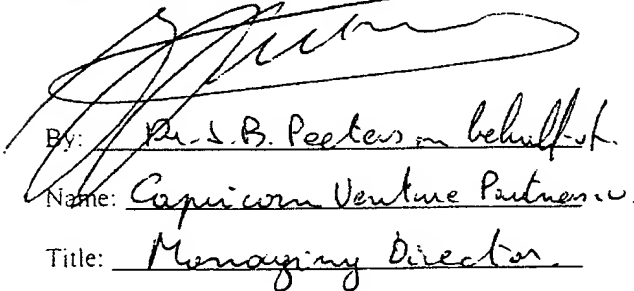 By: Dr. J.B. Peeters on behalf of.
Name: Capricorn Venture Partners
Title: Managing Director.